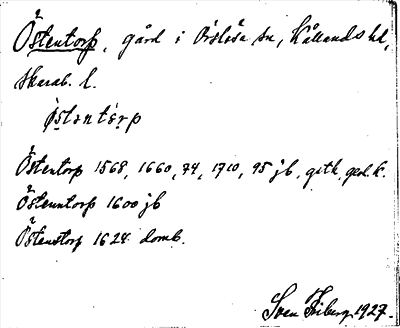 Östentorp, gård i Örslösa sn, Kållands hd,
Skarab. l.
östentòrp
Östentorp 1568, 1660, 74, 1710, 95 jb, gstk, geol. k.
Östenntorp 1600 jb
Östenstorp 1624 domb.
Sven Friberg 1927.